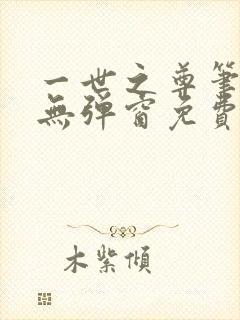 一世之尊筆
無彈窗免費
木紫傾